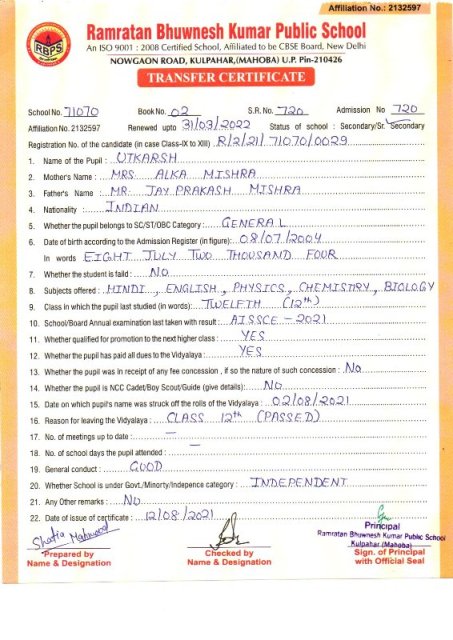 Affiliation No.: 2132597
RBPS
Ramratan Bhuwnesh Kumar Public School
An ISO 9001 : 2008 Certified School, Affiliated to be CBSE Board, New Delhi
NOWGAON ROAD, KULPAHAR,(MAHOBA) U.P. Pin-210426
TRANSFER CERTIFICATE
School No. 71070 Book No. 02 S.R. No. 720 Admission No 720
Affiliation No. 2132597 Renewed upto 31/03/2022 Status of school : Secondary/Sr. Secondary
Registration No. of the candidate (in case Class-IX to XIII) R/2/21/71070/0029
1. Name of the Pupil : UTKARSH
2. Mother's Name : MRS. ALKA MISHRA
3. Father's Name : MR. JAY PRAKASH MISHRA
4. Nationality : INDIAN
5. Whether the pupil belongs to SC/ST/OBC Category : GENERAL
6. Date of birth according to the Admission Register (in figure): 08/07/2004
In words EIGHT JULY TWO THOUSAND FOUR
7. Whether the student is faild : NO
8. Subjects offered : HINDI, ENGLISH, PHYSICS, CHEMISTRY, BIOLOGY
9. Class in which the pupil last studied (in words): TWELFTH (12th)
10. School/Board Annual examination last taken with result : AISSCE - 2021
11. Whether qualified for promotion to the next higher class : YES
12. Whether the pupil has paid all dues to the Vidyalaya : YES
13. Whether the pupil was in receipt of any fee concession , if so the nature of such concession : No
14. Whether the pupil is NCC Cadet/Boy Scout/Guide (give details): No
15. Date on which pupil's name was struck off the rolls of the Vidyalaya : 02/08/2021
16. Reason for leaving the Vidyalaya : CLASS 12th (PASSED)
17. No. of meetings up to date : —
18. No. of school days the pupil attended : —
19. General conduct : GOOD
20. Whether School is under Govt./Minorty/Indepence category : INDEPENDENT
21. Any Other remarks : No
22. Date of issue of certificate : 12/08/2021
Principal
Ramratan Bhuwnesh Kumar Public School
Kulpahar (Mahoba)
Prepared by Checked by Sign. of Principal
Name & Designation Name & Designation with Official Seal